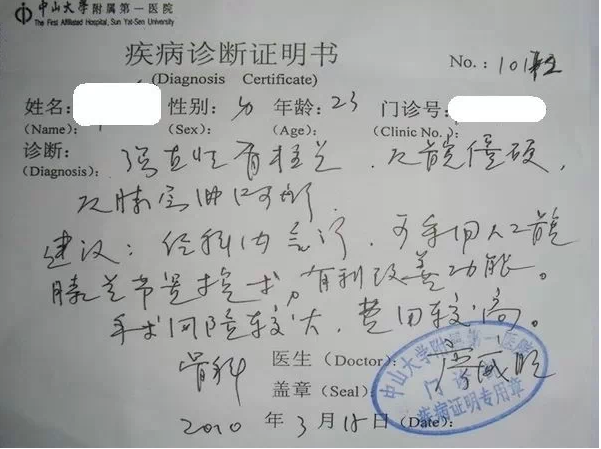 中山大学附属第一医院
The First Affiliated Hospital, Sun Yat-Sen University
疾病诊断证明书
(Diagnosis Certificate)
No.: 101
姓名: 性别: 男 年龄: 23 门诊号:
(Name): (Sex): (Age): (Clinic No.):
诊断: 强直性脊柱炎, 双髋僵硬,
(Diagnosis):
双膝屈曲
建议: 经科内会诊, 可手术人工髋
膝关节置换术, 有利改善功能。
手术风险较大, 费用较高。
骨科 医生 (Doctor):
盖章 (Seal):
中山大学附属第一医院
门诊
疾病证明专用章
2010 年 3 月 18 日 (Date):